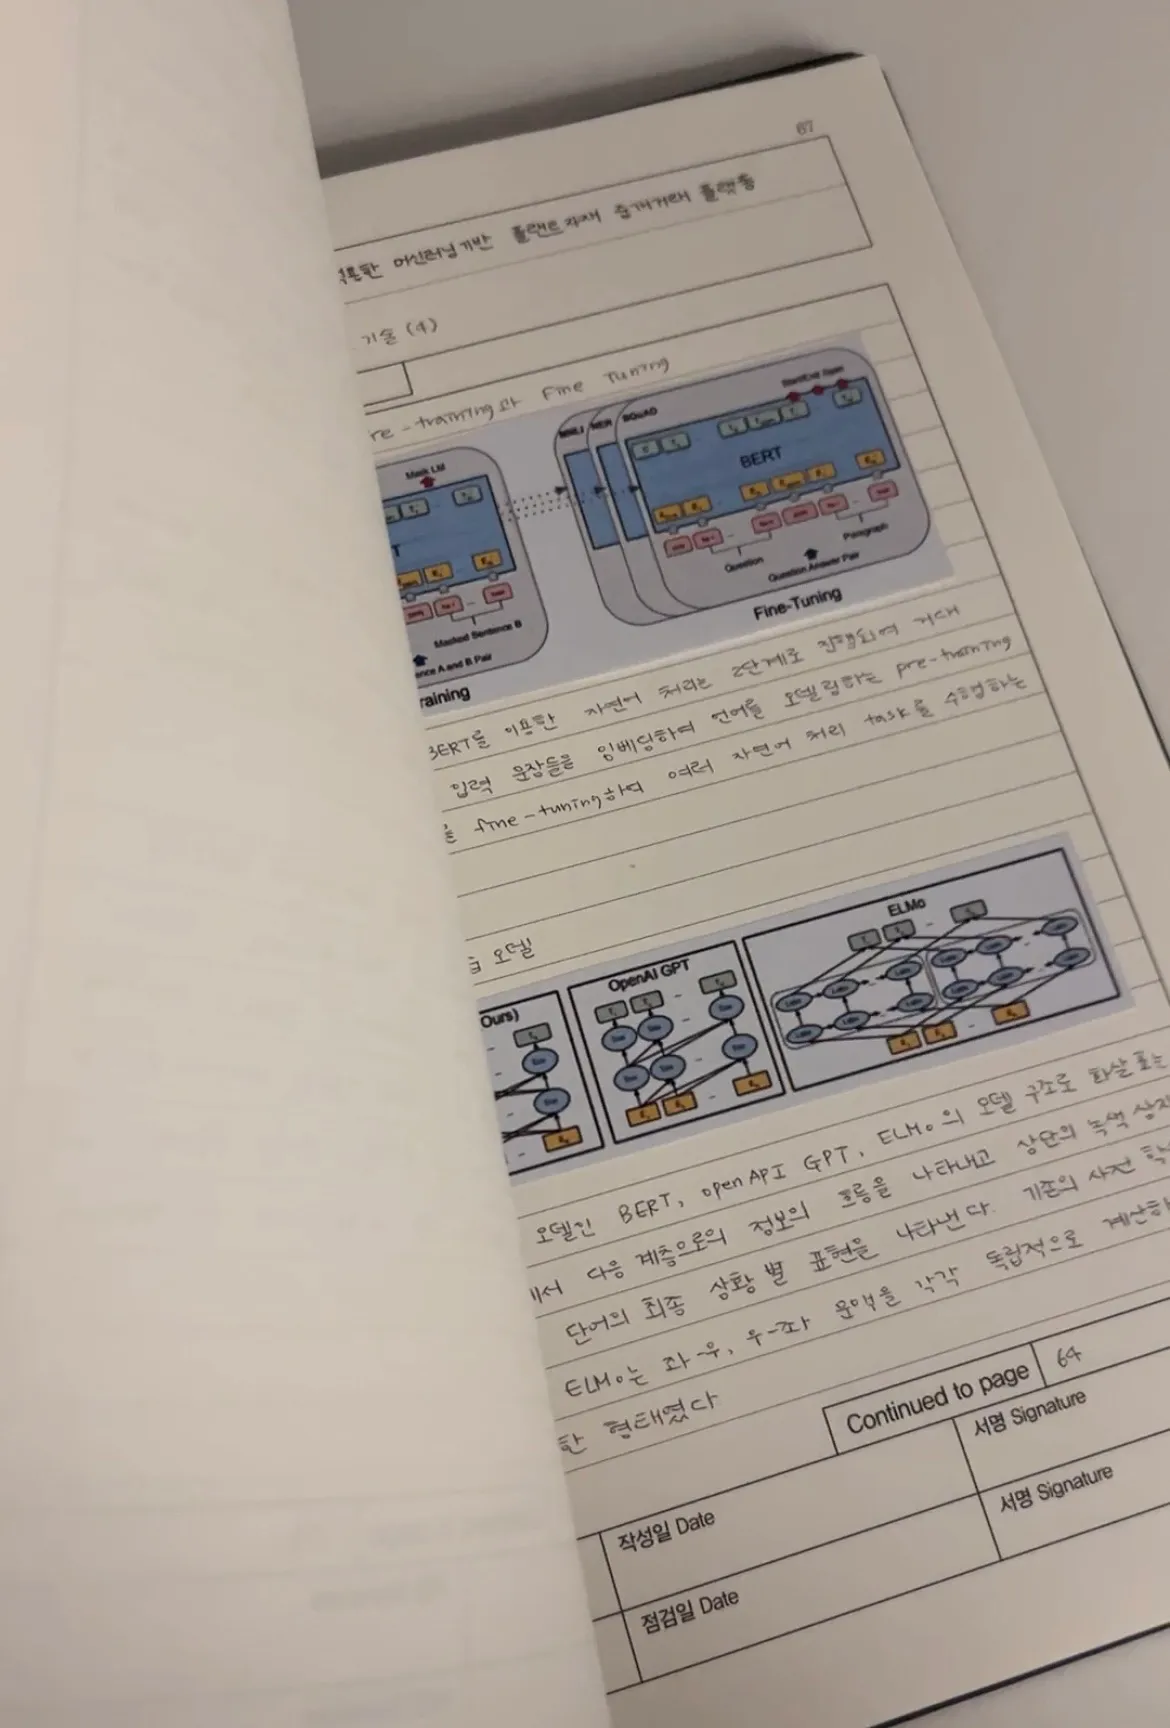 67
머신러닝기반 플랜트자재 중개거래 플랫폼
기술 (4)
re-training와 Fine Tuning
Mask LM
Masked Sentence B
ence A and B Pair
raining
MNLI NER SQuAD
Start/End Span
BERT
Question
Paragraph
Question Answer Pair
Fine-Tuning
BERT를 이용한 자연어 처리는 2단계로 진행되며 거대
입력 문장들을 임베딩하여 언어를 모델링하는 pre-training
를 fine-tuning하여 여러 자연어 처리 task를 수행하는
모델
Ours)
OpenAI GPT
ELMo
모델인 BERT, open API GPT, ELMo의 모델 구조로 화살표는
에서 다음 계층으로의 정보의 흐름을 나타내고 상단의 녹색 상자
단어의 최종 상황 별 표현을 나타낸다. 기존의 사전
ELMo는 좌-우, 우-좌 문맥을 각각 독립적으로 계산하
한 형태였다
Continued to page 64
서명 Signature
작성일 Date
서명 Signature
점검일 Date